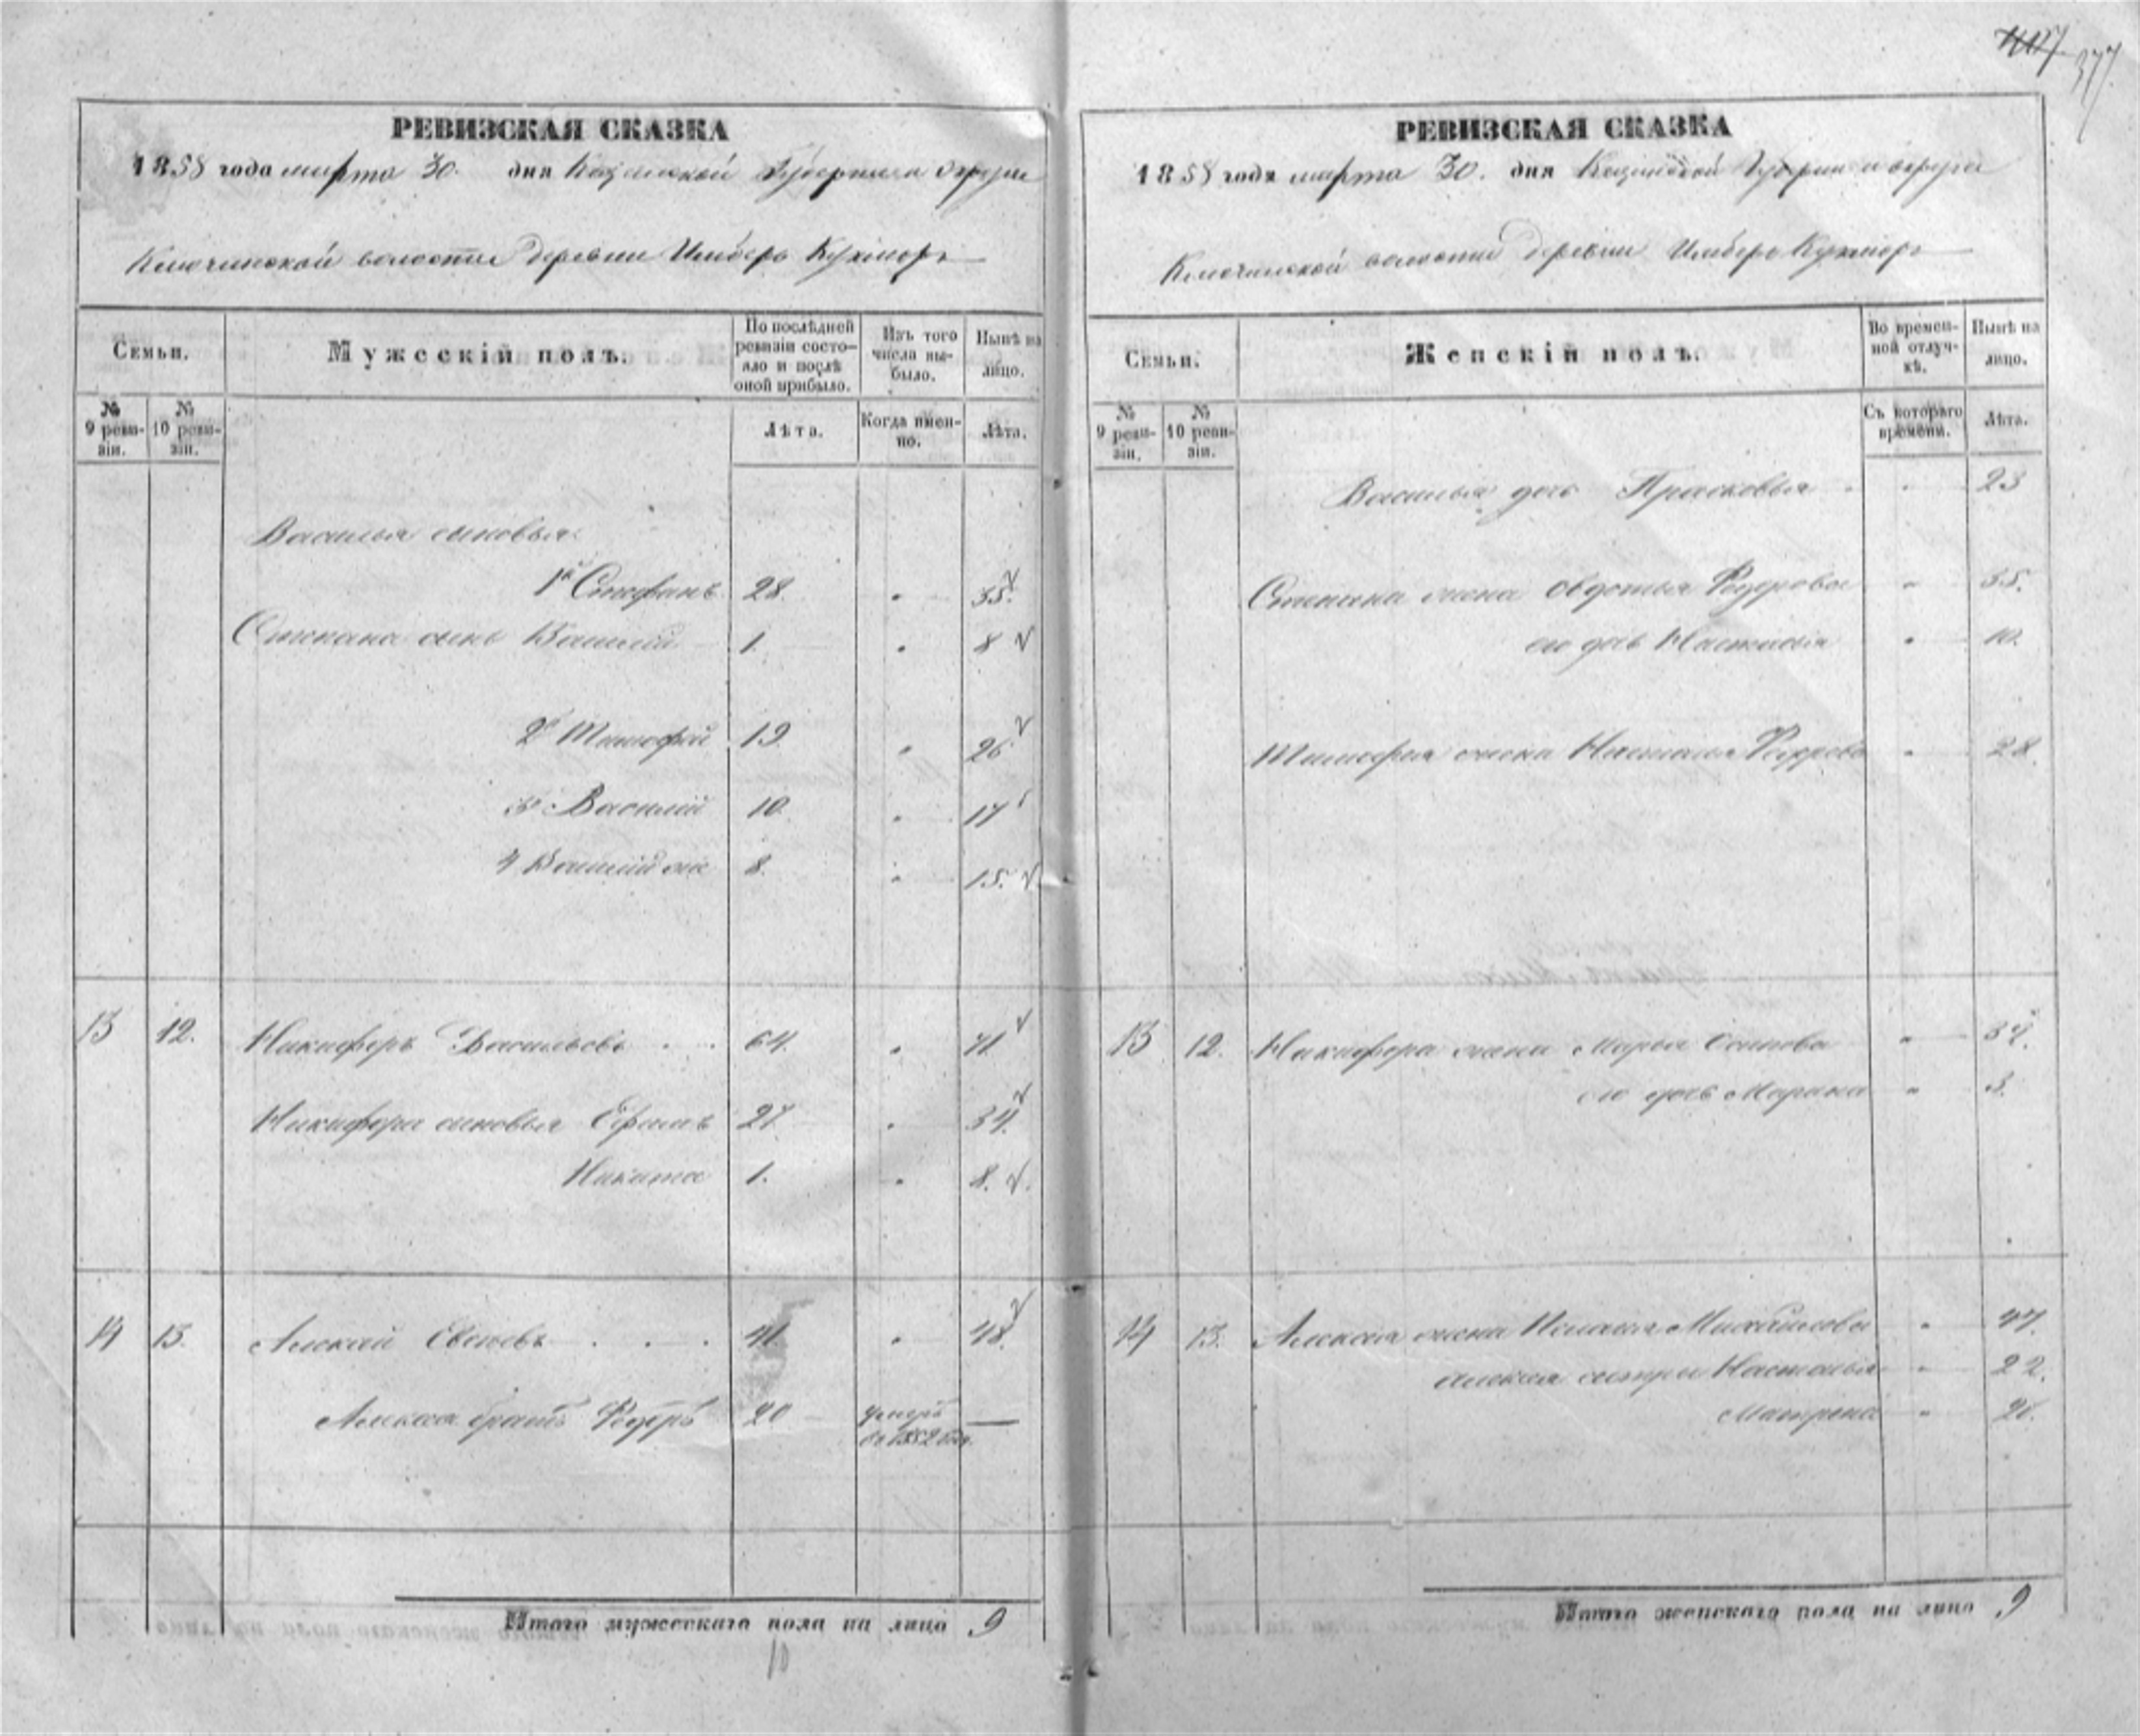 407
377
РЕВИЗСКАЯ СКАЗКА
1858 года марта 30. дня Казанской Губернии и округа
Ключинской волости Деревни Имберь Кукморъ
Семьи.
Мужескій полъ.
По послѣдней ревизіи состо-
яло и послѣ
оной прибыло.
Изъ того
числа вы-
было.
Нынѣ на
лицо.
№
9 реви-
зіи.
№
10 реви-
зіи.
Лѣта.
Когда имен-
но.
Лѣта.
Василья сыновья
1й Стефанъ 28. " 35.
Степана сынъ Василій 1. " 8
2й Тимофей 19 " 26
3й Василій 10. " 17
4 Василій же 8. " 15.
13 12. Никифоръ Васильевъ . . 64. " 71
Никифора сыновья Ефимъ 27 " 34.
Никита 1. " 8.
14 13. Алексей . . . 41. " 48.
Алексея братъ Федоръ 20 умеръ
въ 1852 году. —
Итого мужескаго пола на лицо 9
10
РЕВИЗСКАЯ СКАЗКА
1858 года марта 30. дня Казанской Губернии и округа
Ключинской волости Деревни Имберь Кукморъ
Семьи.
Женскій полъ.
Во времен-
ной отлуч-
кѣ.
Нынѣ на
лицо.
№
9 реви-
зіи.
№
10 реви-
зіи.
Съ котораго
времени.
Лѣта.
Василья дочь Прасковья " 23
Степана жена Овдотья Федорова " 35.
его дочь Настасья " 10.
Тимофея жена Наталья Федорова " 28.
13 12. Никифора жена Марья Осипова " 34.
его дочь Марина " 3.
14 13. Алексея жена Михайлова " 47.
Алексея сестры Наталья " 22.
Матрена " 20.
Итого женскаго пола на лицо 9